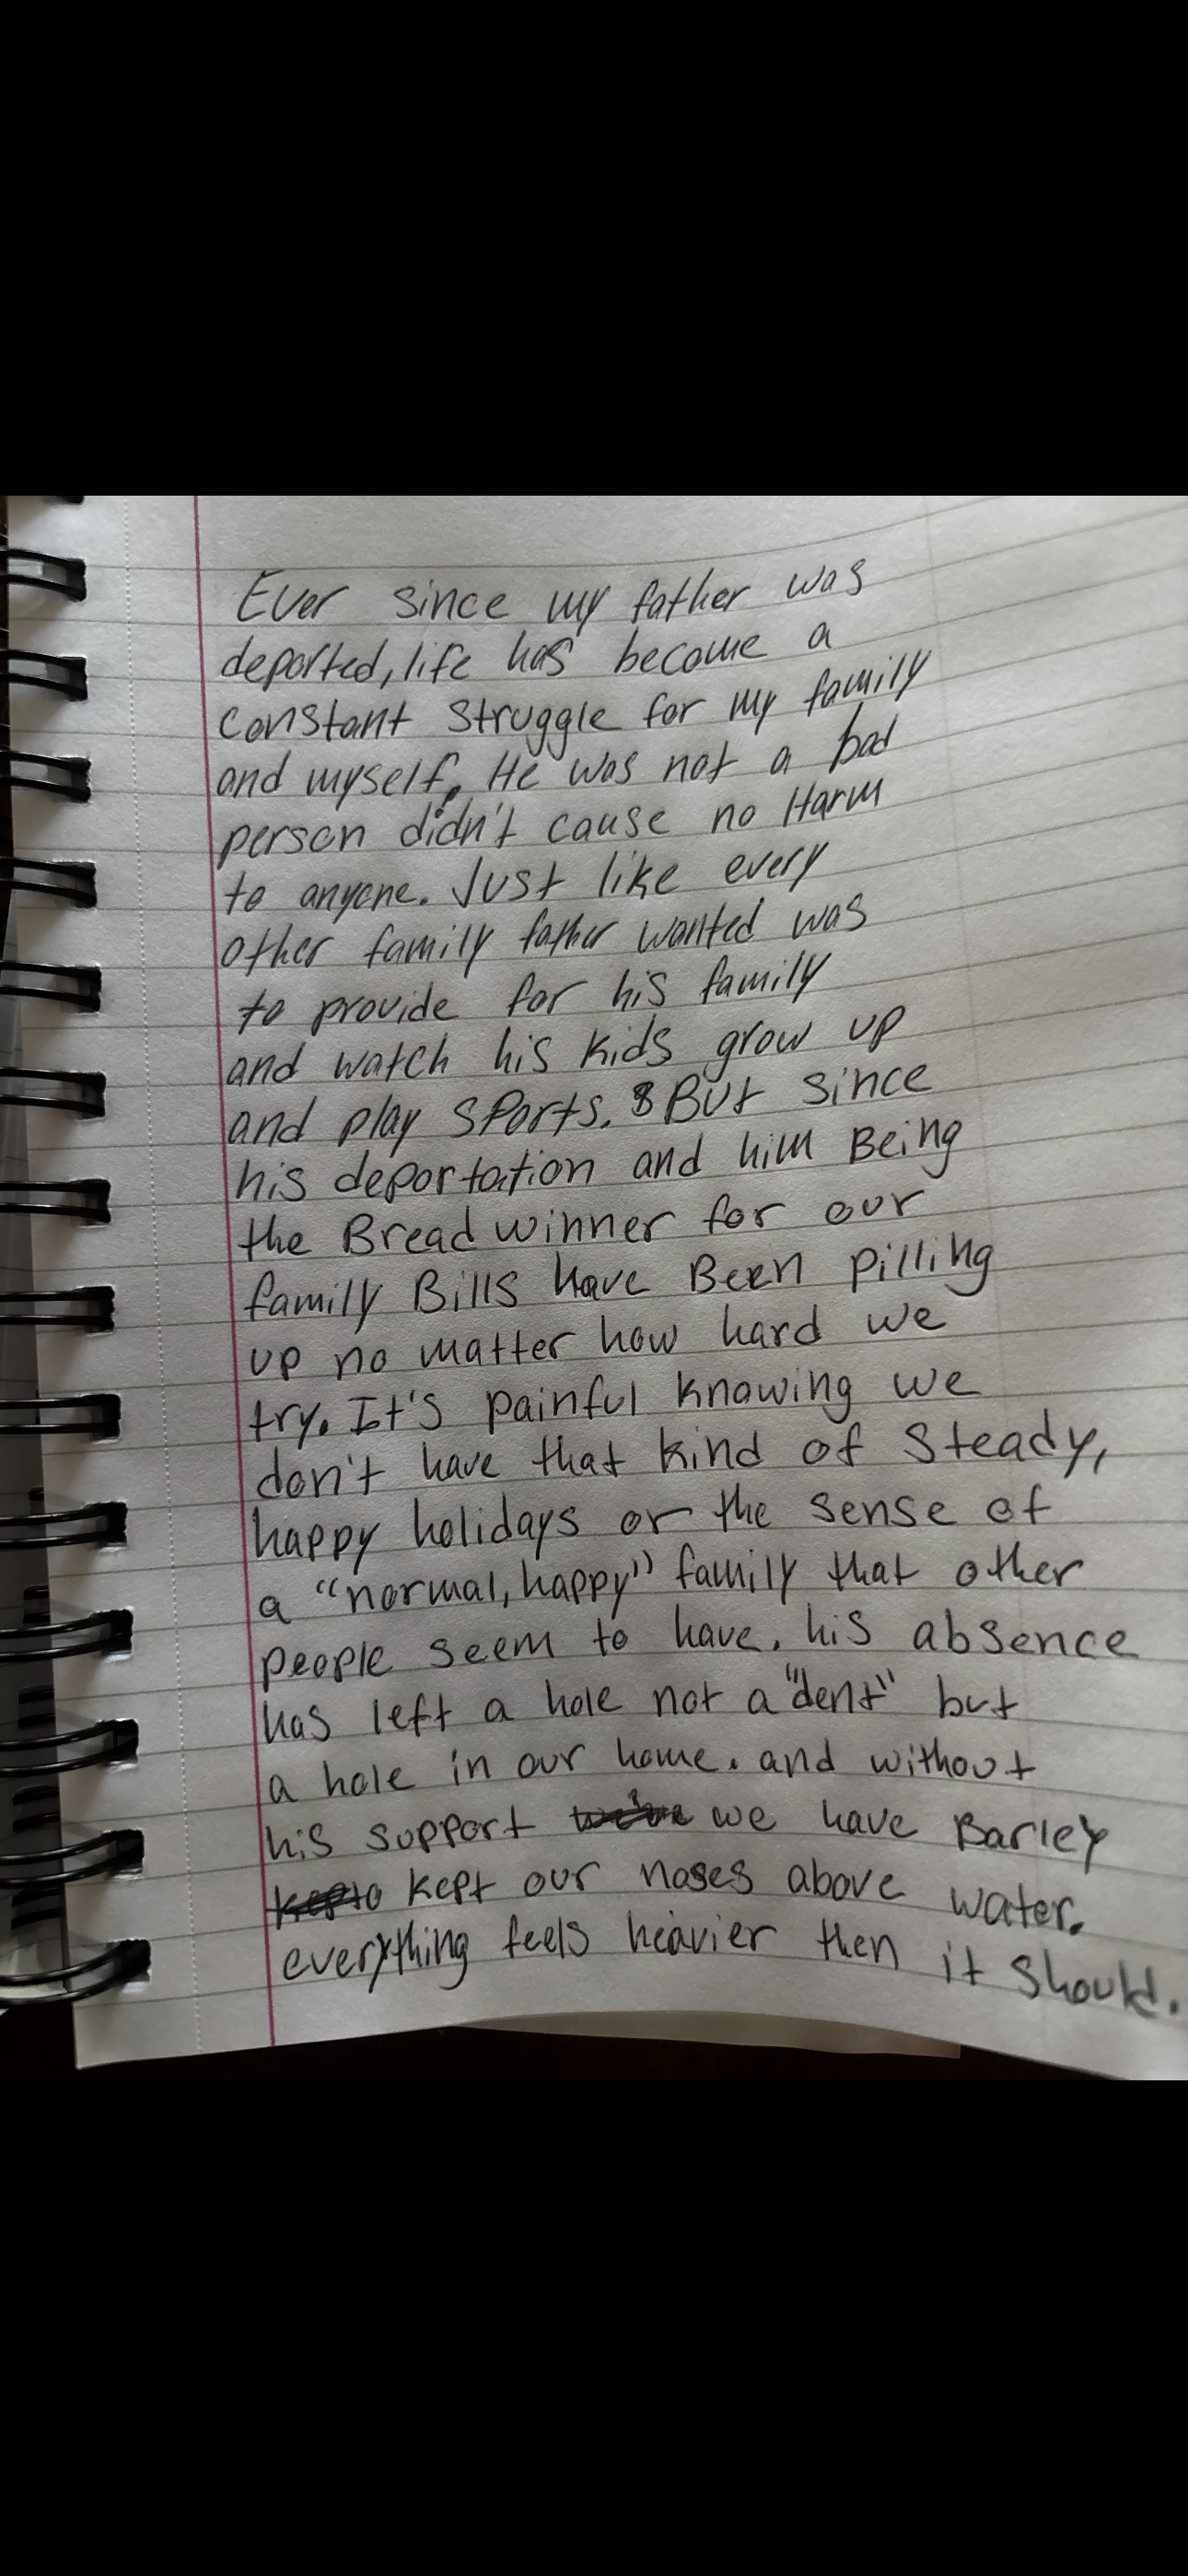 Ever since my father was
deported, life has become a
constant struggle for my family
and myself. He was not a bad
person didn't cause no Harm
to anyone. Just like every
other family father wanted was
to provide for his family
and watch his kids grow up
and play sports. But since
his deportation and him Being
the Bread winner for our
family Bills have Been pilling
up no matter how hard we
try. It's painful knowing we
don't have that kind of steady,
happy holidays or the sense of
a "normal, happy" family that other
people seem to have. his absence
has left a hole not a "dent" but
a hole in our home. and without
his support we have Barley
kept our noses above water.
everything feels heavier then it should.